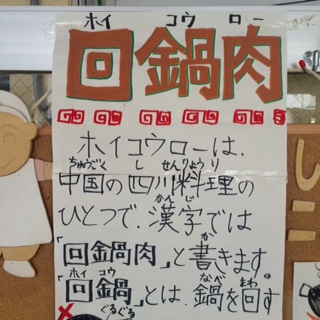 ホイ コウ ロー
回鍋肉
ホイコウローは、
ちゅうごく し せんりょうり
中国の四川料理の
かんじ
ひとつで、漢字では
か
「回鍋肉」と書きます。
ホイ コウ なべ まわ
「回鍋」とは、鍋を回す
ぐるぐる